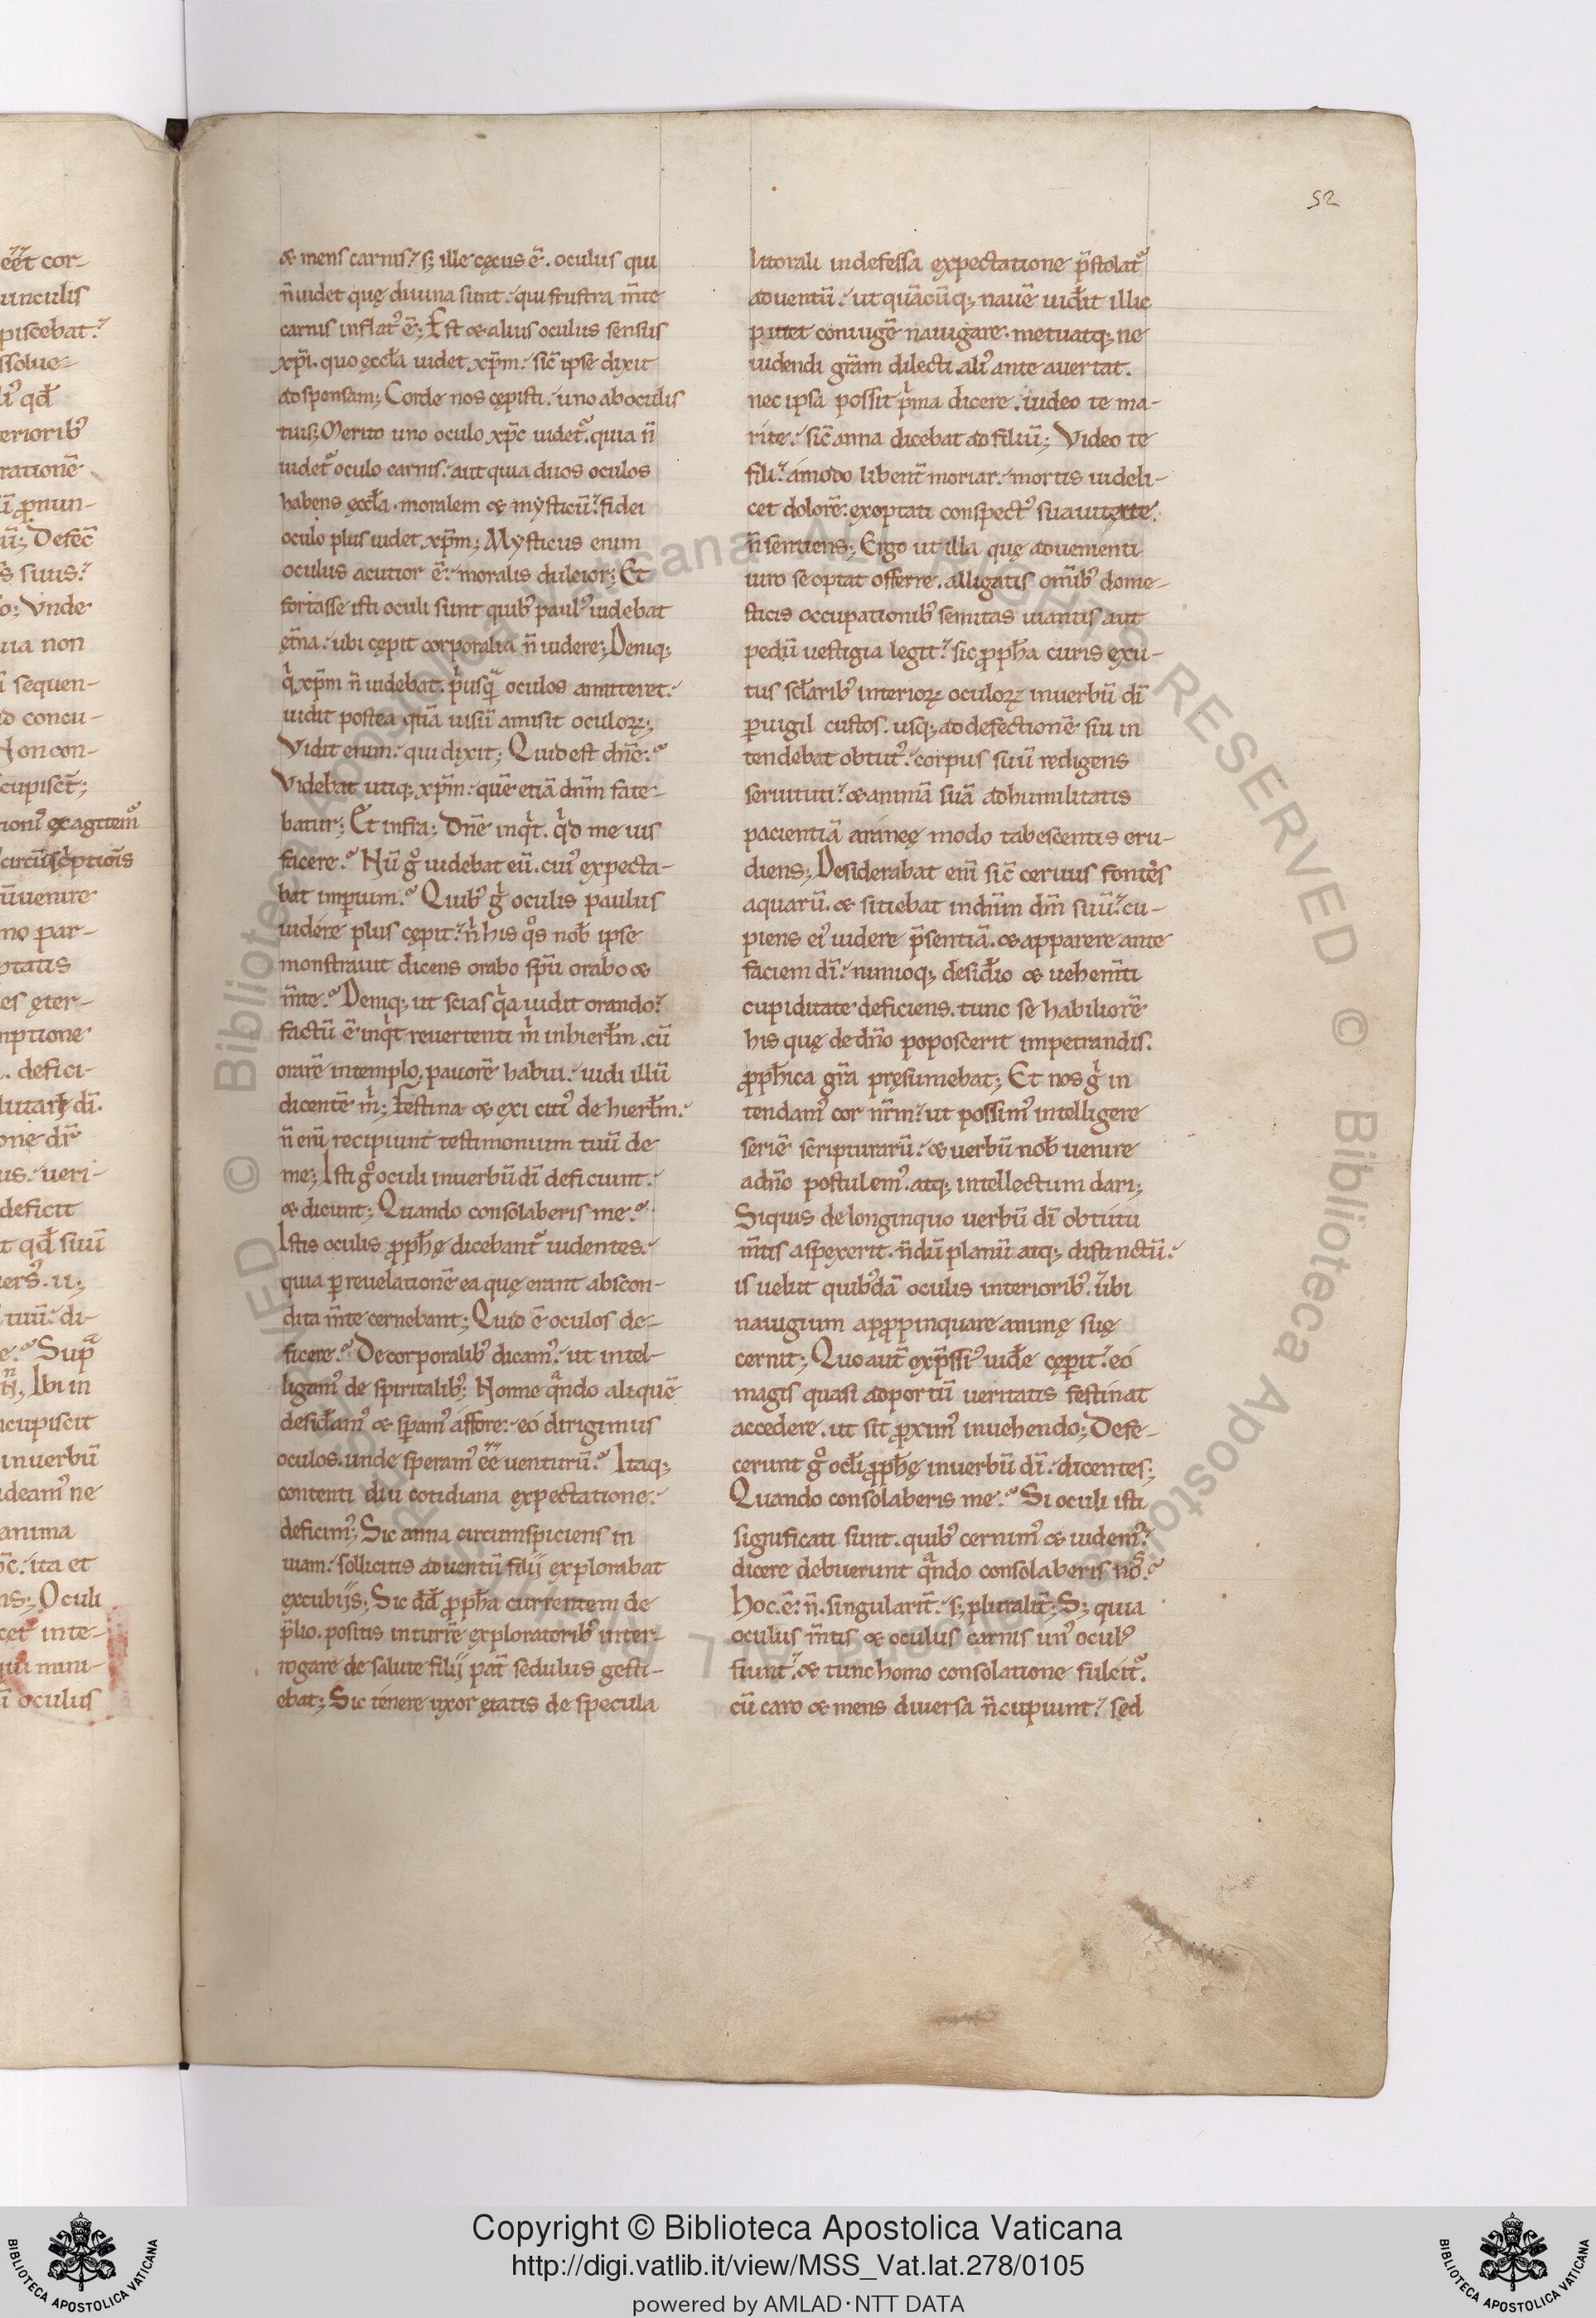 eẽt cor-
unculis
piscebat.
ssolue-
li᷒ qđ
eriorib᷒
rationẽ
ĩ ꝓnun-
ũ; Defec̃
s̃ suis.
o; Vnde
uia non
ĩ sequen-
ıd concu-
Non con-
cupisc̃t;
tioni᷒ exagitem᷒
circũscͥptiõis
ũuenire
mo par-
ptatis
es ęter-
mptione
. defici-
lutarẽ dĩ.
one dr̃
us. ueri-
deficit
t qđ suũ
uers᷒. ii;
tuũ. di-
e. Supᷓ
Ibi in
ncupiscit
in uerbũ
ideam᷒ ne
anima
p̃c. ita et
ns; Oculi
cet inte-
qui mini-
ĩ oculus
52
& mens carnis. s; ille cęcus ẽ. oculus qui
ñ uidet quę diuina sunt. qui frustra m̃te
carnis inflat᷒ ẽ; Est & alius oculus sensus
xp̃i. quo ęccła uidet xp̃m. sic̃ ipse dixit
ad sponsam; Corde nos cępisti. uno ab oculis
tuis; Merito uno oculo xp̃c uidet᷒. quia ñ
uidet᷒ oculo carnis. aut quia duos oculos
habens ęccła. moralem & mysticũ. fidei
oculo plus uidet xp̃m; Mysticus enim
oculus acutior ẽ. moralis dulcior; Et
fortasse isti oculi sunt quib᷒ paul᷒ uidebat
ęt̃na. ubi cępit corporalia ñ uidere; Deniq;
qͥ xp̃m ñ uidebat. pͥusqᷓ oculos amitteret.
uidit postea quã uisũ amisit oculoꝝ;
Vidit enim. qui dixit; Quid est dñe.
Videbat utiq; xp̃m. quẽ etiã dñm fate-
batur; Et infra; Dñe inqͥt. qͥd me uis
facere. Nũ gͦ uidebat eũ. cui᷒ expecta-
bat imꝑium. Quib᷒ gͥ oculis paulus
uidere plus cępit. ñ his qͦs nob̃ ipse
monstrauit dicens orabo sp̃u orabo &
m̃te. Deniq; ut scias qͥa uidit orando.
factũ ẽ inqͥt reuertenti mͥ in hierłm. cũ
orarẽ in templo. pauorẽ habui. uidi illũ
dicentẽ mͥ; Festina & exi citi᷒ de hierłm.
ñ enĩ recipiunt testimonium tuũ de
me; Isti gͦ oculi in uerbũ dĩ deficiunt.
& dicunt; Quando consolaberis me.
Istis oculis ꝓph̃ę dicebant᷒ uidentes.
quia ꝑ reuelationẽ ea quę erant abscon-
dita m̃te cernebant; Quid ẽ oculos de-
ficere. De corporalib᷒ dicam᷒. ut intel-
ligam᷒ de spiritalib᷒; Nonne qᷓndo aliquẽ
desiđam᷒ & sꝑam᷒ affore. eó dirigimus
oculos. unde speram᷒ eẽ uenturũ. Itaq;
contenti diu cotidiana expectatione.
deficim᷒; Sic anna circumspiciens in
uiam. sollicitis aduentũ filij explorabat
excubijs; Sic đđ ꝓph̃a currentem de
p̃lio. positis in turrẽ exploratorib᷒ inter-
rogare de salute filij pat̃ sedulus gesti-
ebat; Sic tenere uxor ętatis de specula
littorali indefessa expectatione p̃stolat᷒
aduentũ. ut quãcũq; nauẽ uiđit illic
putet coniugẽ nauigare. metuatq; ne
uidendi gr̃am dilecti. ali᷒ ante auertat.
nec ipsa possit pͥma dicere. uideo te ma-
rite. sic̃ anna dicebat ad filiũ; Video te
fili. ámodo libent̃ moriar. mortis uideli-
cet dolorẽ. exoptati conspect᷒ suauitate.
ñ sentiens; Ergo ut illa quę aduenienti
uiro se optat offerre. alligatis om̃ib᷒ dome-
sticis occupationib᷒ semitas uiantis aut
pedũ uestigia legit. sic ꝓph̃a curis exu-
tus scłarib᷒ interioꝝ oculoꝝ in uerbũ dĩ
ꝑuigil custos. usq; ad defectionẽ siu in
tendebat obtut᷒. corpus suũ redigens
seruituti. & animã suã ad humilitatis
pacientiã aráneę modo tabescentis eru-
diens; Desiderabat enĩ sic̃ ceruus fontes
aquarũ. & sitiebat in dñm dm̃ suũ. cu-
piens ei᷒ uidere p̃sentiã. & apparere ante
faciem dĩ. nimioq; desiđio & uehem̃ti
cupiditate deficiens. tunc se habiliorẽ
his quę de dño poposcerit impetrandis.
ꝓph̃ica gr̃a pręsumebat; Et nos gͥ in
tendam᷒ cor nr̃m. ut possim᷒ intelligere
seriẽ scripturarũ. & uerbũ nob̃ uenire
a dño postulem᷒. atq; intellectum dari;
Siquis de longinquo uerbũ dĩ obtutu
m̃tis aspexerit. ñdũ planũ atq; distinctũ.
is uelut quib᷒dã oculis interiorib᷒. ubi
nauigium appropinquare animę suę
cernit; Quo aut̃ exp̃ssi᷒ uiđe cęperit. eó
magis quasi ad portũ ueritatis festinat
accedere. ut sit ꝓxim᷒ inuehendo; Defe-
cerunt gͦ ocłi ꝓph̃ę in uerbũ dĩ. dicentes;
Quando consolaberis me. Si oculi isti
significati sunt. quib᷒ cernim᷒ & uidem᷒.
dicere debuerunt qᷓndo consolaberis nos.
Hoc. ẽ. ñ. singularit̃. s; pluralit̃; S; quia
oculus m̃tis & oculus carnis un᷒ ocul᷒
fiunt. & tunc homo consolatione fulcit᷒.
cũ caro & mens diuersa ñ cupiunt. sed
Copyright © Biblioteca Apostolica Vaticana
http://digi.vatlib.it/view/MSS_Vat.lat.278/0105
powered by AMLAD·NTT DATA